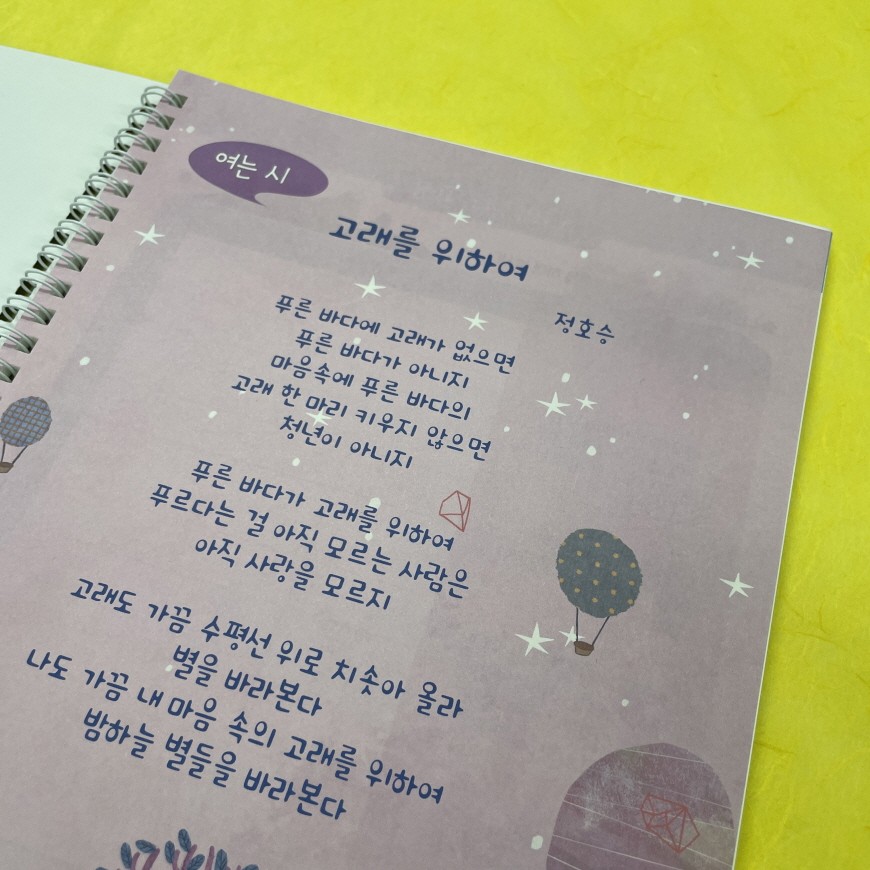 여는 시
고래를 위하여
정호승
푸른 바다에 고래가 없으면
푸른 바다가 아니지
마음속에 푸른 바다의
고래 한 마리 키우지 않으면
청년이 아니지
푸른 바다가 고래를 위하여
푸르다는 걸 아직 모르는 사람은
아직 사랑을 모르지
고래도 가끔 수평선 위로 치솟아 올라
별을 바라본다
나도 가끔 내 마음 속의 고래를 위하여
밤하늘 별들을 바라본다